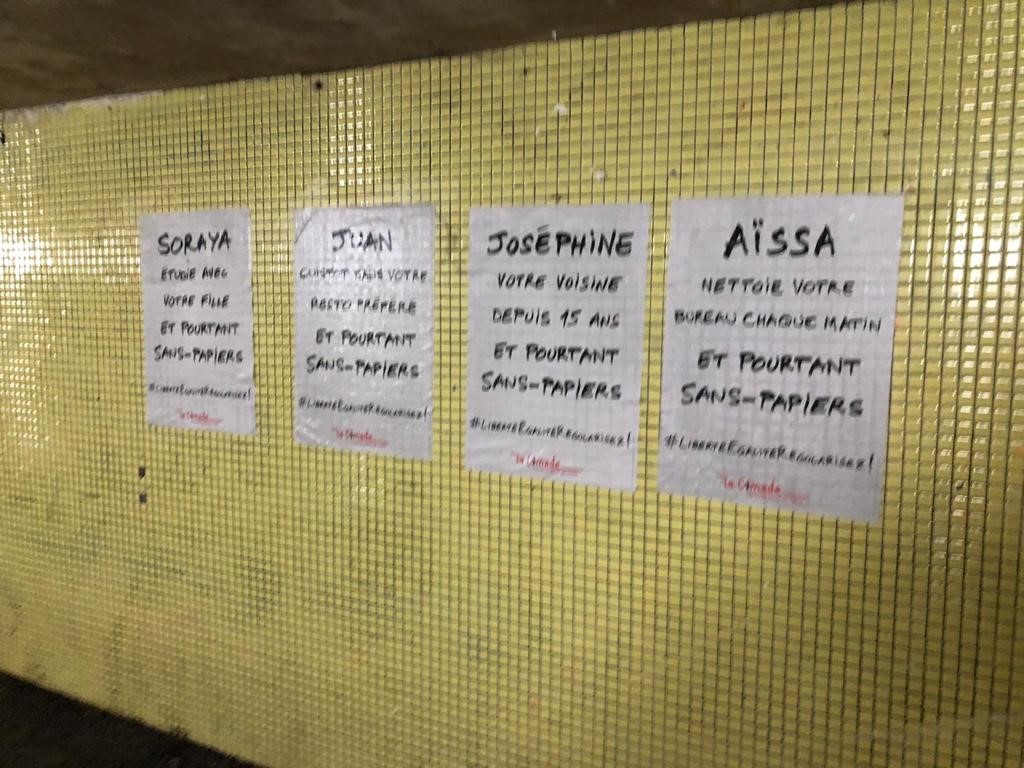 SORAYA
ETUDIE AVEC
VOTRE FILLE
ET POURTANT
SANS-PAPIERS
#LIBERTEEGALITEREGULARISEZ!
JUAN
CUISTOT DANS VOTRE
RESTO PRÉFÉRÉ
ET POURTANT
SANS-PAPIERS
#LIBERTEEGALITEREGULARISEZ!
JOSÉPHINE
VOTRE VOISINE
DEPUIS 15 ANS
ET POURTANT
SANS-PAPIERS
#LIBERTEEGALITEREGULARISEZ!
AÏSSA
NETTOIE VOTRE
BUREAU CHAQUE MATIN
ET POURTANT
SANS-PAPIERS
#LIBERTEEGALITEREGULARISEZ!